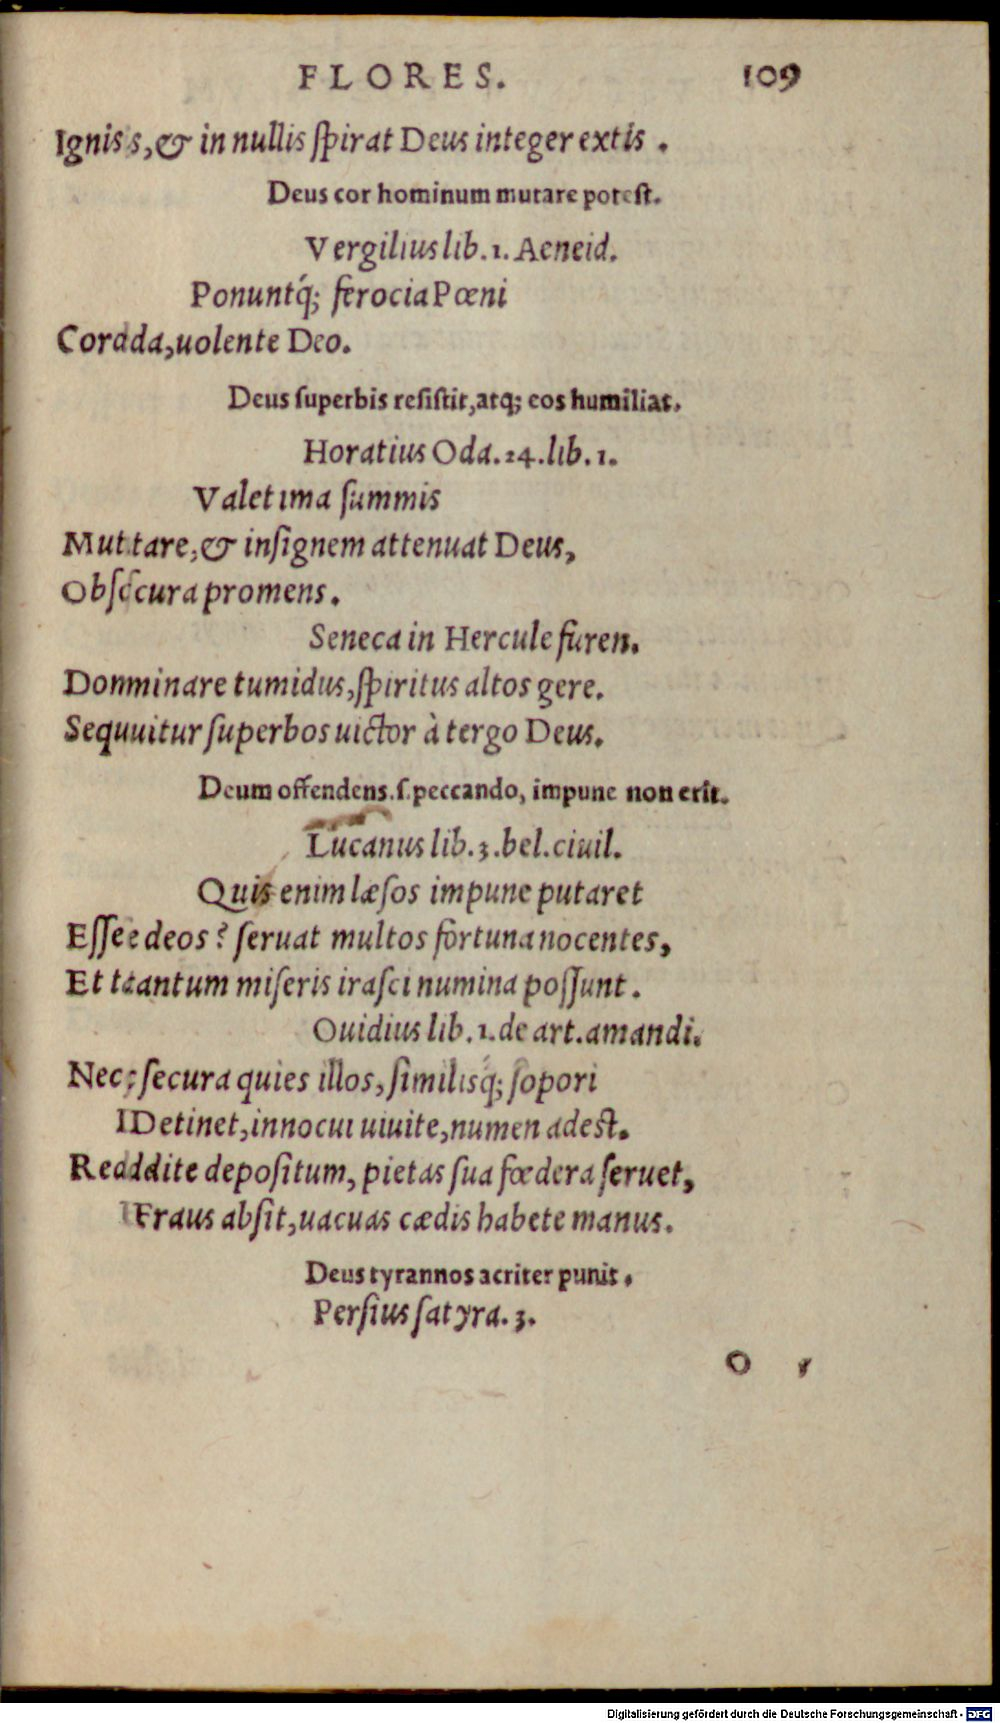 FLORES. 109
Ignis, & in nullis ſpirat Deus integer extis.
Deus cor hominum mutare poteſt.
Vergilius lib. 1. Aeneid.
Ponuntq́; ferocia Pœni
Corda, uolente Deo.
Deus ſuperbis reſiſtit, atq; eos humiliat.
Horatius Oda. 24. lib. 1.
Valet ima ſummis
Mutare, & inſignem attenuat Deus,
Obſcura promens.
Seneca in Hercule furen.
Dominare tumidus, ſpiritus altos gere.
Sequitur ſuperbos uictor à tergo Deus.
Deum offendens .ſ. peccando, impune non erit.
Lucanus lib. 3. bel. ciuil.
Quis enim læſos impune putaret
Eſſe deos? ſeruat multos fortuna nocentes,
Et tantum miſeris iraſci numina poſſunt.
Ouidius lib. 1. de art. amandi.
Nec ſecura quies illos, ſimilisq́; ſopori
Detinet, innocui uiuite, numen adest.
Reddite depoſitum, pietas ſua fœdera ſeruet,
Fraus abſit, uacuas cædis habete manus.
Deus tyrannos acriter punit.
Perſius ſatyra. 3.
O
Digitalisierung gefördert durch die Deutsche Forschungsgemeinschaft - DFG